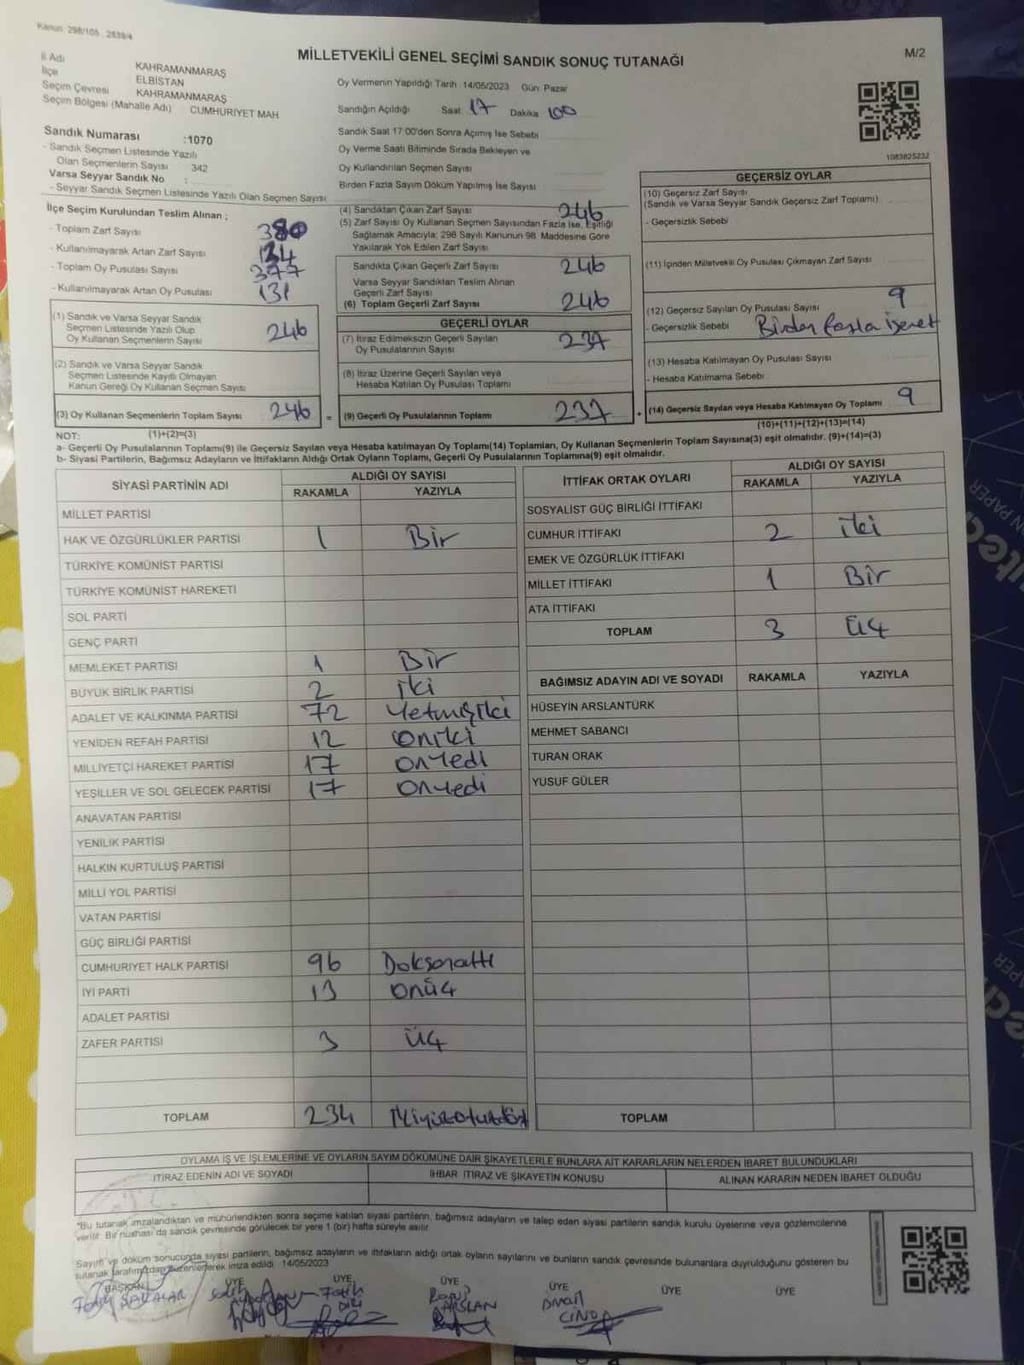 Kanun: 298/105
MİLLETVEKİLİ GENEL SEÇİMİ SANDIK SONUÇ TUTANAĞI
M/2
İl Adı KAHRAMANMARAŞ
İlçe ELBİSTAN
Seçim Çevresi KAHRAMANMARAŞ
Seçim Bölgesi (Mahalle Adı) CUMHURİYET MAH
Sandık Numarası :1070
- Sandık Seçmen Listesinde Yazılı
Olan Seçmenlerin Sayısı 342
Varsa Seyyar Sandık No :
- Seyyar Sandık Seçmen Listesinde Yazılı Olan Seçmen Sayısı
Oy Vermenin Yapıldığı Tarih :14/05/2023 Gün: Pazar
Sandığın Açıldığı Saat 17 Dakika 100
Sandık Saat 17:00'den Sonra Açımış İse Sebebi
Oy Verme Saati Bitiminde Sırada Bekleyen ve
Oy Kullandırılan Seçmen Sayısı
Birden Fazla Sayım Döküm Yapılmış İse Sayısı
1083825232
İlçe Seçim Kurulundan Teslim Alınan ;
- Toplam Zarf Sayısı 380
- Kullanılmayarak Artan Zarf Sayısı 134
- Toplam Oy Pusulası Sayısı 377
- Kullanılmayarak Artan Oy Pusulası 131
(1) Sandık ve Varsa Seyyar Sandık
Seçmen Listesinde Yazılı Olup
Oy Kullanan Seçmenlerin Sayısı 246
(2) Sandık ve Varsa Seyyar Sandık
Seçmen Listesinde Kayıtlı Olmayan
Kanun Gereği Oy Kullanan Seçmen Sayısı
(3) Oy Kullanan Seçmenlerin Toplam Sayısı 246 =
(4) Sandıktan Çıkan Zarf Sayısı 246
(5) Zarf Sayısı Oy Kullanan Seçmen Sayısından Fazla İse, Eşitliği
Sağlamak Amacıyla; 298 Sayılı Kanunun 98. Maddesine Göre
Yakılarak Yok Edilen Zarf Sayısı
Sandıkta Çıkan Geçerli Zarf Sayısı 246
Varsa Seyyar Sandıktan Teslim Alınan
Geçerli Zarf Sayısı
(6) Toplam Geçerli Zarf Sayısı 246
GEÇERLİ OYLAR
(7) İtiraz Edilmeksizin Geçerli Sayılan
Oy Pusulalarının Sayısı 237
(8) İtiraz Üzerine Geçerli Sayılan veya
Hesaba Katılan Oy Pusulası Toplamı
(9) Geçerli Oy Pusulalarının Toplamı 237 +
GEÇERSİZ OYLAR
(10) Geçersiz Zarf Sayısı
(Sandık ve Varsa Seyyar Sandık Geçersiz Zarf Toplamı)
- Geçersizlik Sebebi
(11) İçinden Milletvekili Oy Pusulası Çıkmayan Zarf Sayısı
(12) Geçersiz Sayılan Oy Pusulası Sayısı 9
- Geçersizlik Sebebi Birden fazla işaret
(13) Hesaba Katılmayan Oy Pusulası Sayısı
- Hesaba Katılmama Sebebi
(14) Geçersiz Sayılan veya Hesaba Katılmayan Oy Toplamı 9
(10)+(11)+(12)+(13)=(14)
NOT: (1)+(2)=(3)
a- Geçerli Oy Pusulalarının Toplamı(9) ile Geçersiz Sayılan veya Hesaba katılmayan Oy Toplamı(14) Toplamları, Oy Kullanan Seçmenlerin Toplam Sayısına(3) eşit olmalıdır. (9)+(14)=(3)
b- Siyasi Partilerin, Bağımsız Adayların ve İttifakların Aldığı Ortak Oyların Toplamı, Geçerli Oy Pusulalarının Toplamına(9) eşit olmalıdır.
SİYASİ PARTİNİN ADI ALDIĞI OY SAYISI
RAKAMLA YAZIYLA
MİLLET PARTİSİ
HAK VE ÖZGÜRLÜKLER PARTİSİ 1 Bir
TÜRKİYE KOMÜNİST PARTİSİ
TÜRKİYE KOMÜNİST HAREKETİ
SOL PARTİ
GENÇ PARTİ
MEMLEKET PARTİSİ 1 Bir
BÜYÜK BİRLİK PARTİSİ 2 iki
ADALET VE KALKINMA PARTİSİ 72 Yetmişiki
YENİDEN REFAH PARTİSİ 12 oniki
MİLLİYETÇİ HAREKET PARTİSİ 17 onyedi
YEŞİLLER VE SOL GELECEK PARTİSİ 17 onyedi
ANAVATAN PARTİSİ
YENİLİK PARTİSİ
HALKIN KURTULUŞ PARTİSİ
MİLLİ YOL PARTİSİ
VATAN PARTİSİ
GÜÇ BİRLİĞİ PARTİSİ
CUMHURİYET HALK PARTİSİ 96 Doksanaltı
İYİ PARTİ 13 onüç
ADALET PARTİSİ
ZAFER PARTİSİ 3 Üç
TOPLAM 234 ikiyüzotuzdört
İTTİFAK ORTAK OYLARI ALDIĞI OY SAYISI
RAKAMLA YAZIYLA
SOSYALİST GÜÇ BİRLİĞİ İTTİFAKI
CUMHUR İTTİFAKI 2 iki
EMEK VE ÖZGÜRLÜK İTTİFAKI
MİLLET İTTİFAKI 1 Bir
ATA İTTİFAKI
TOPLAM 3 Üç
BAĞIMSIZ ADAYIN ADI VE SOYADI RAKAMLA YAZIYLA
HÜSEYİN ARSLANTÜRK
MEHMET SABANCI
TURAN ORAK
YUSUF GÜLER
TOPLAM
OYLAMA İŞ VE İŞLEMLERİNE VE OYLARIN SAYIM DÖKÜMÜNE DAİR ŞİKAYETLERLE BUNLARA AİT KARARLARIN NELERDEN İBARET BULUNDUKLARI
İTİRAZ EDENİN ADI VE SOYADI İHBAR İTİRAZ VE ŞİKAYETİN KONUSU ALINAN KARARIN NEDEN İBARET OLDUĞU
*Bu tutanak imzalandıktan ve mühürlendikten sonra seçime katılan siyasi partilerin, bağımsız adayların ve talep eden siyasi partilerin sandık kurulu üyelerine veya gözlemcilerine
verilir. Bir nüshası da sandık çevresinde görülecek bir yere 1 (bir) hafta süreyle asılır.
Sayım ve döküm sonucunda siyasi partilerin, bağımsız adayların ve ittifakların aldığı ortak oyların sayılarını ve bunların sandık çevresinde bulunanlara duyrulduğunu gösteren bu
tutanak tarafımızdan düzenlenerek imza edildi. 14/05/2023
BAŞKAN ÜYE ÜYE ÜYE ÜYE ÜYE ÜYE
Fatih
ARSLAN
İsmail